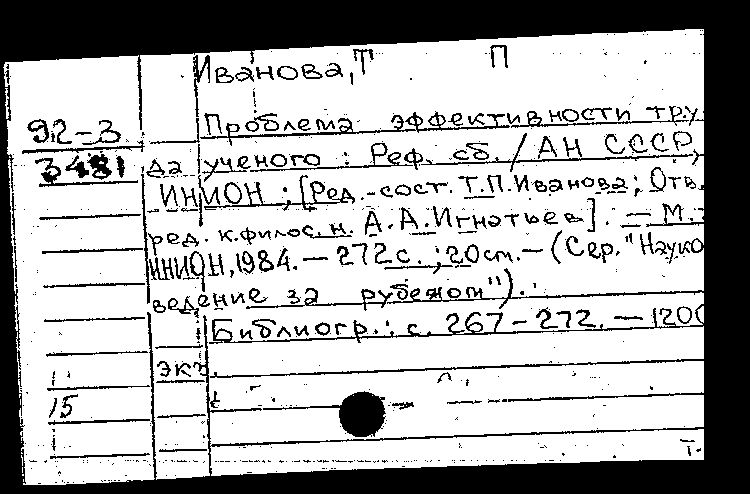 Иванова, Т П
92-3
3481
Проблема эффективности тру
да ученого : Реф. сб. / АН СССР,
ИНИОН ; [Ред.-сост. Т.П.Иванова; Отв.
ред. к.филос.н. А.А.Игнатьев]. — М.:
ИНИОН, 1984. — 272 с. ; 20 см. — (Сер. "Науко
ведение за рубежом").
Библиогр.: с. 267-272. — 1200
экз.
15